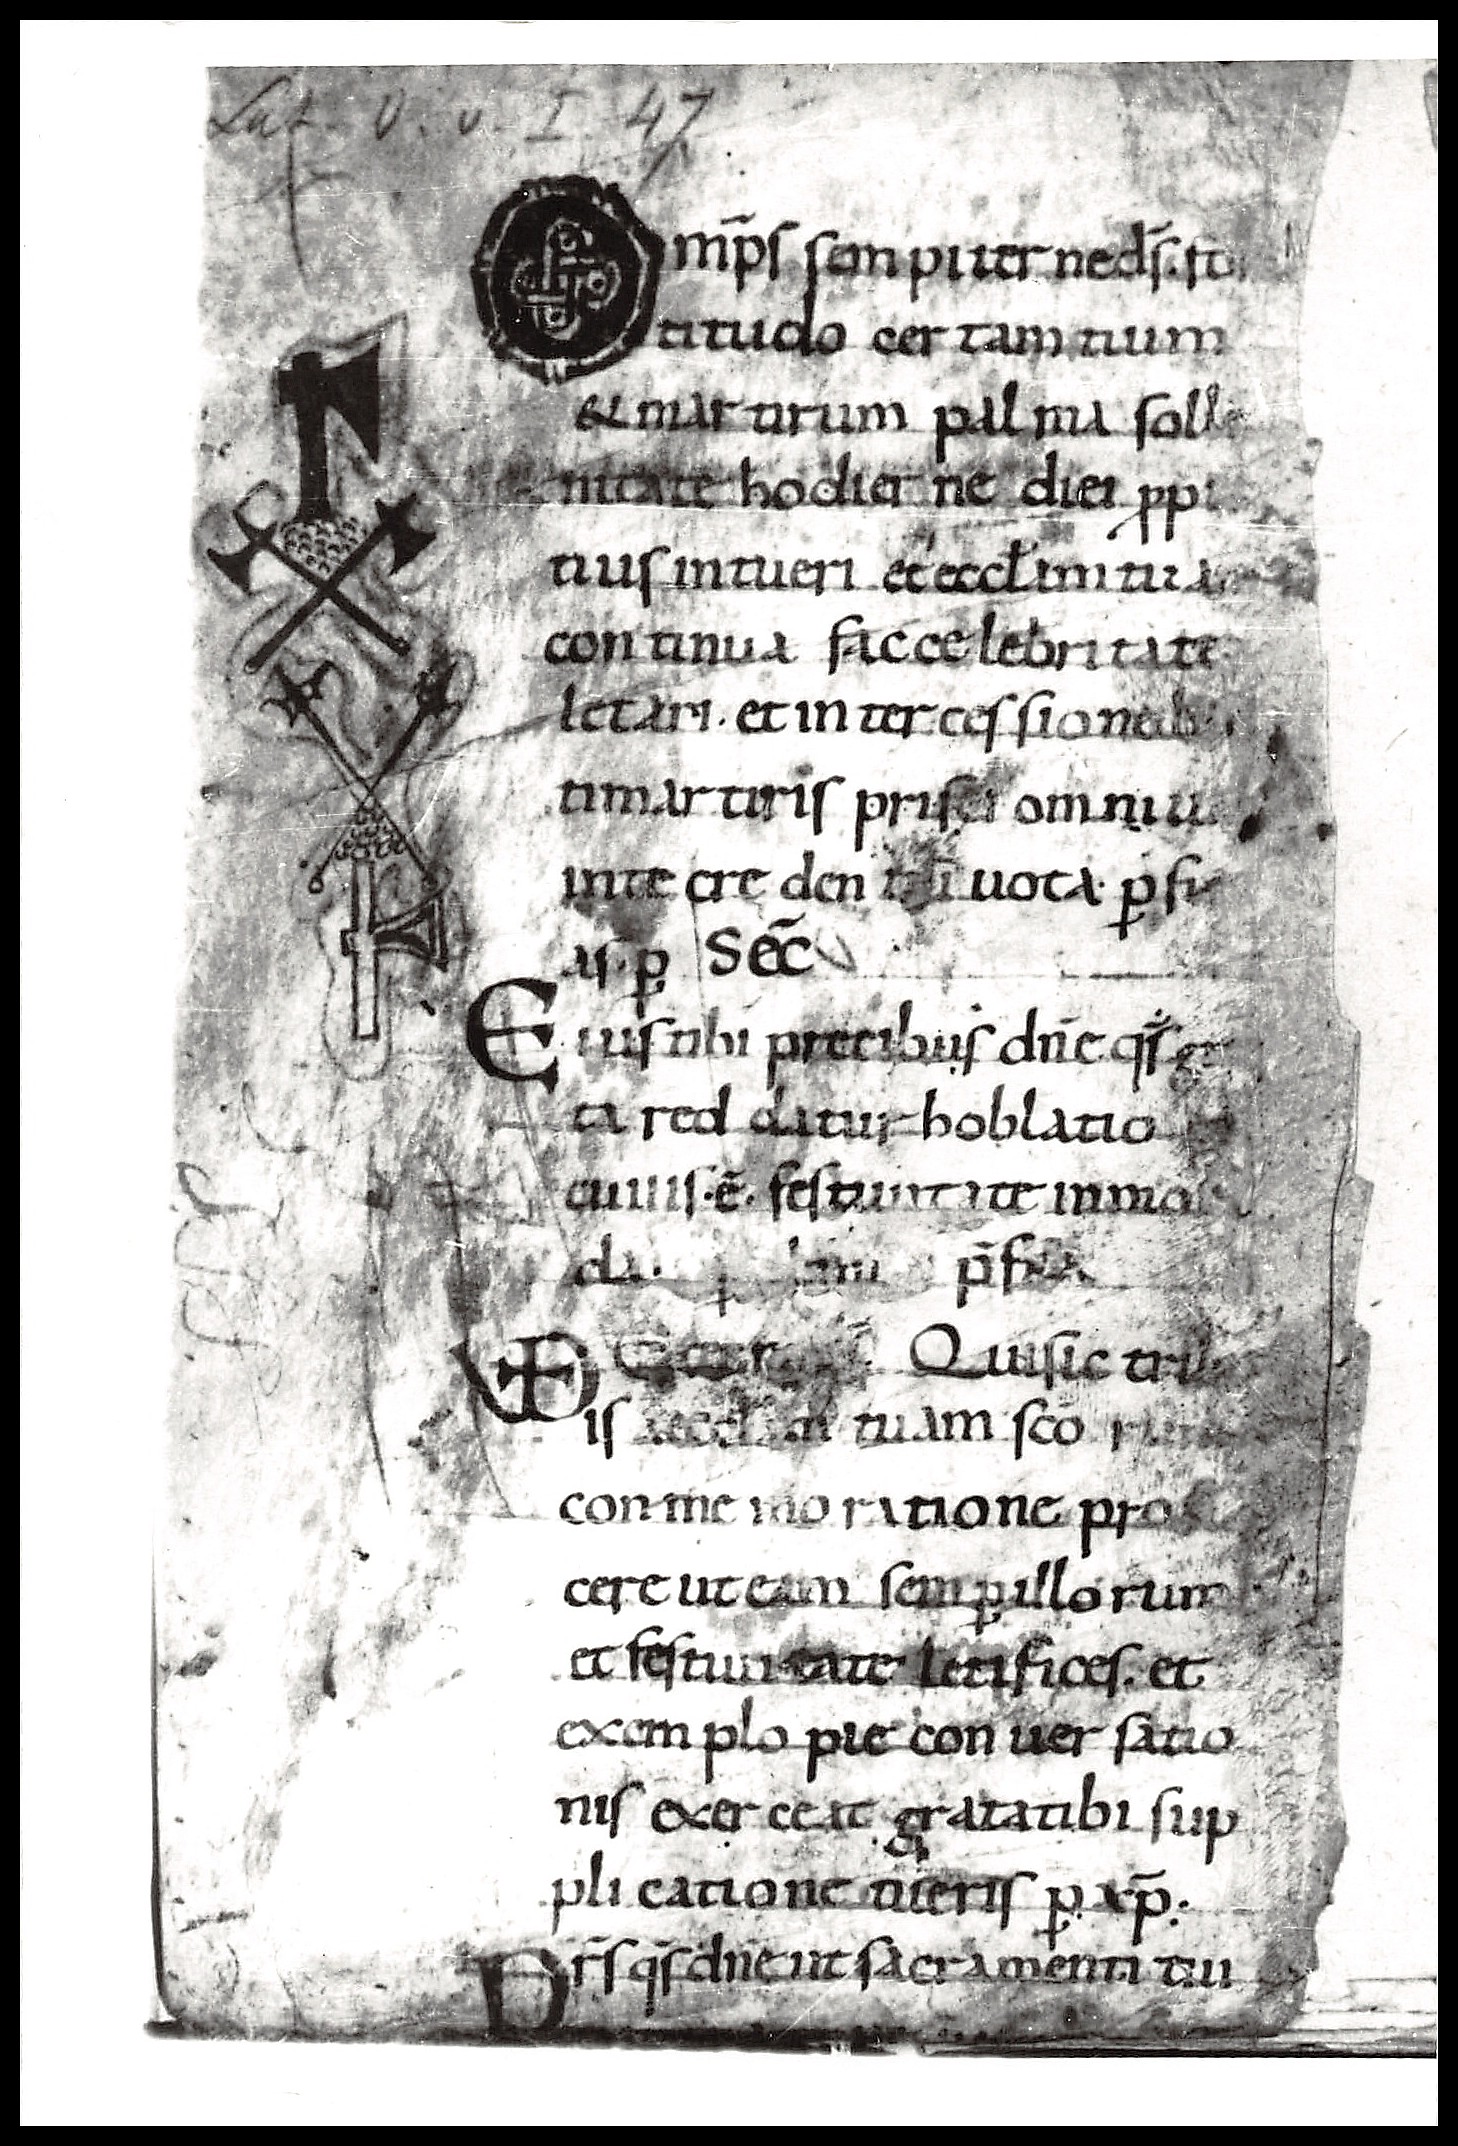 Lat. O. v. I 47
Omp̄s sempiterne d̄s. fo
titudo certantium
& martirum palma soll
nitate hodierne diei prp
tius intueri et eccl̄im tua
continua fac celebritate
letari. et intercessione b
ti martiris prisci omniu
in te credentiu uota. ꝑfi
as. ꝑ Sēc
Eius tibi precibus dn̄e qs̄ gr
ta reddatur hoblatio
cuius. ē. festiuitate immo
p̄fa
VD Qui sic trib
is tuam sc̄o
conmemoratione pro
cere ut eam semꝑ illorum
et festiuitate letifices. et
exemplo pie conuersatio
nis exerceat grata tibi sup
plicatione tueris ꝑ xp̄.
Pr̄s qs̄ dn̄e ut sacramenti tui